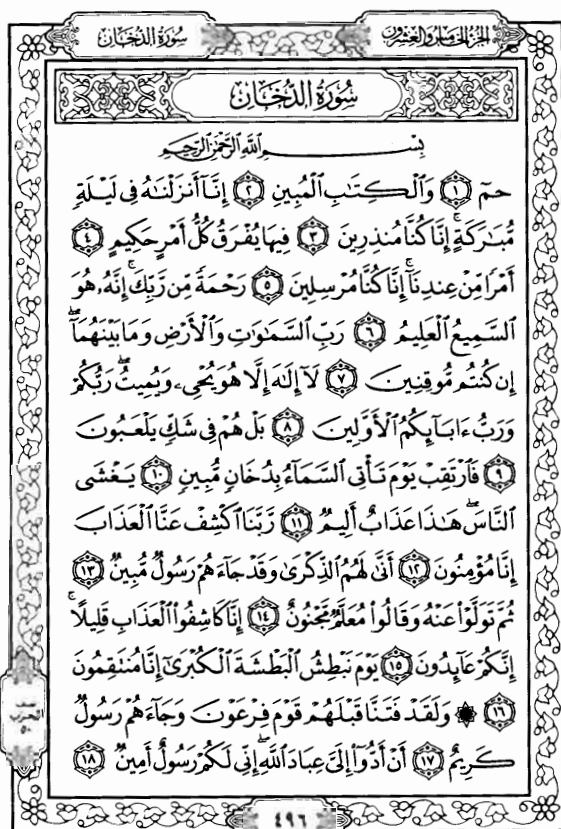 الجزء الخامس والعشرون سورة الدخان
سُورَةُ الدُّخَانِ
بِسْمِ ٱللَّهِ ٱلرَّحْمَٰنِ ٱلرَّحِيمِ
حمٓ ١ وَٱلْكِتَٰبِ ٱلْمُبِينِ ٢ إِنَّآ أَنزَلْنَٰهُ فِى لَيْلَةٍ
مُّبَٰرَكَةٍ ۚ إِنَّا كُنَّا مُنذِرِينَ ٣ فِيهَا يُفْرَقُ كُلُّ أَمْرٍ حَكِيمٍ ٤
أَمْرًا مِّنْ عِندِنَآ ۚ إِنَّا كُنَّا مُرْسِلِينَ ٥ رَحْمَةً مِّن رَّبِّكَ ۚ إِنَّهُۥ هُوَ
ٱلسَّمِيعُ ٱلْعَلِيمُ ٦ رَبِّ ٱلسَّمَٰوَٰتِ وَٱلْأَرْضِ وَمَا بَيْنَهُمَآ ۖ
إِن كُنتُم مُّوقِنِينَ ٧ لَآ إِلَٰهَ إِلَّا هُوَ يُحْىِۦ وَيُمِيتُ ۖ رَبُّكُمْ
وَرَبُّ ءَابَآئِكُمُ ٱلْأَوَّلِينَ ٨ بَلْ هُمْ فِى شَكٍّ يَلْعَبُونَ
٩ فَٱرْتَقِبْ يَوْمَ تَأْتِى ٱلسَّمَآءُ بِدُخَانٍ مُّبِينٍ ١٠ يَغْشَى
ٱلنَّاسَ ۖ هَٰذَا عَذَابٌ أَلِيمٌ ١١ رَّبَّنَا ٱكْشِفْ عَنَّا ٱلْعَذَابَ
إِنَّا مُؤْمِنُونَ ١٢ أَنَّىٰ لَهُمُ ٱلذِّكْرَىٰ وَقَدْ جَآءَهُمْ رَسُولٌ مُّبِينٌ ١٣
ثُمَّ تَوَلَّوْا۟ عَنْهُ وَقَالُوا۟ مُعَلَّمٌ مَّجْنُونٌ ١٤ إِنَّا كَاشِفُوا۟ ٱلْعَذَابِ قَلِيلًا ۚ
إِنَّكُمْ عَآئِدُونَ ١٥ يَوْمَ نَبْطِشُ ٱلْبَطْشَةَ ٱلْكُبْرَىٰٓ إِنَّا مُنتَقِمُونَ
١٦ ۞ وَلَقَدْ فَتَنَّا قَبْلَهُمْ قَوْمَ فِرْعَوْنَ وَجَآءَهُمْ رَسُولٌ
كَرِيمٌ ١٧ أَنْ أَدُّوٓا۟ إِلَىَّ عِبَادَ ٱللَّهِ ۖ إِنِّى لَكُمْ رَسُولٌ أَمِينٌ ١٨
نصف
الحزب
٥٠
٤٩٦